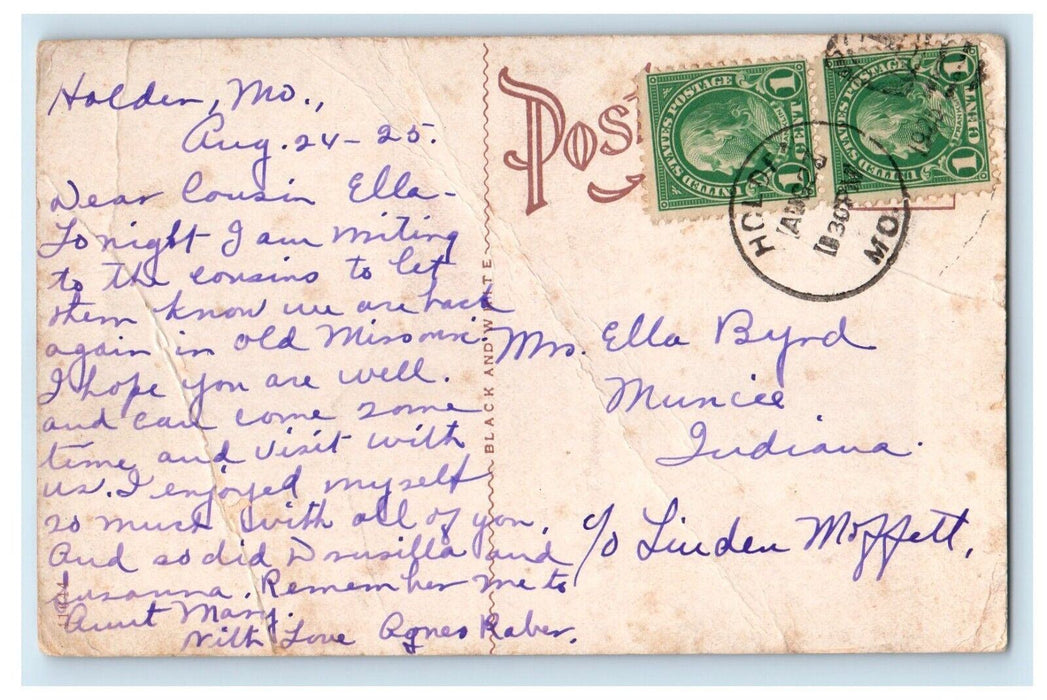 Holden, Mo.,
Aug. 24-25.
Dear Cousin Ella-
Tonight I am writing
to the cousins to let
them know we are back
again in old Missouri
I hope you are well.
and can come some
time and visit with
us. I enjoyed myself
so much with all of you.
And so did Drusilla and
Susanna. Remember me to
Aunt Mary.
With Love Agnes Raber.
BLACK AND WHITE
POS
UNITED STATES POSTAGE
1 CENT 1
UNITED STATES POSTAGE
1 CENT 1
HOLDEN
AUG
830PM
MO.
Mrs. Ella Byrd
Muncie
Indiana.
c/o Linden Moffett,